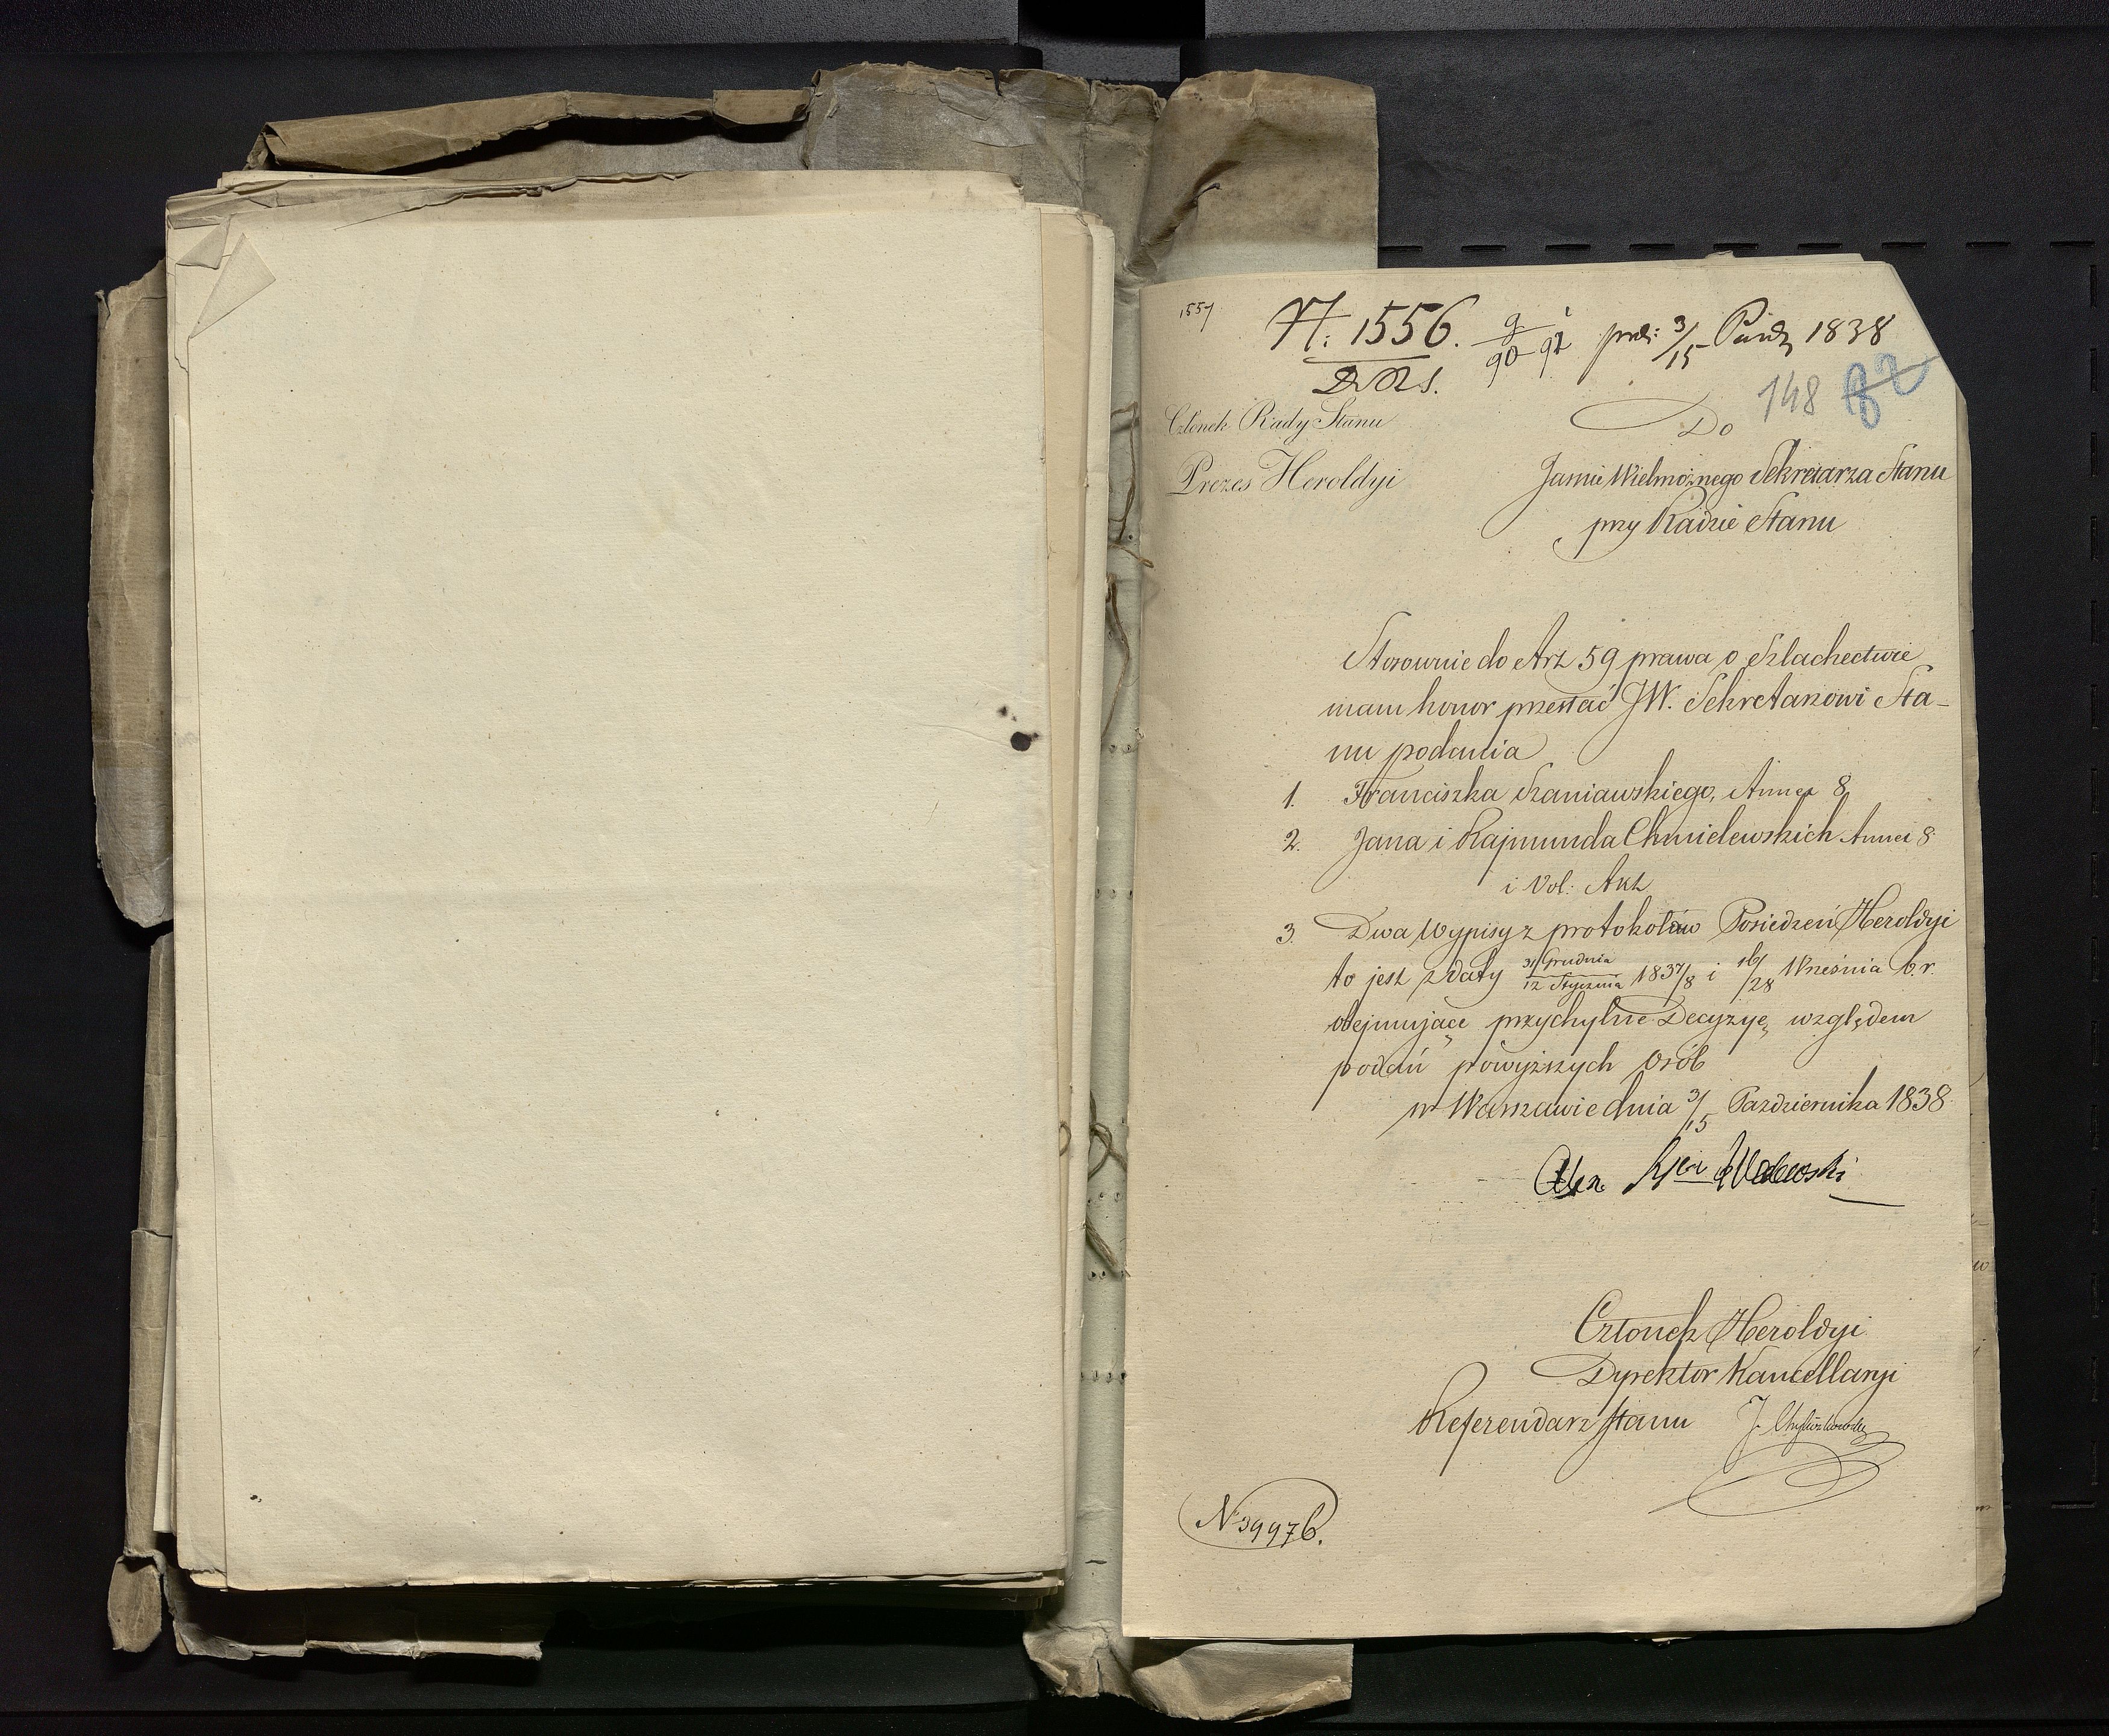 1557
N. 1556. 9/90 i 92 prd: 3/15 Paźdz 1838
D.R.S.
148 82
Członek Rady Stanu
Prezes Heroldyi
Do
Jaśnie Wielmożnego Sekretarza Stanu
przy Radzie Stanu
Stosownie do Art 59 prawa o Szlachectwie
mam honor przesłać JW. Sekretarzowi Sta-
nu podania
1. Franciszka Szaniawskiego, Annex 8
2. Jana i Rajmunda Chmielewskich Annex 8
i Vol: Akt
3. Dwa Wypisy z protokołów Posiedzeń Heroldyi
to jest z daty 31 Grudnia/12 Stycznia 1837/8 i 16/28 Września b.r.
obejmujące przychylne Decyzye, względem
podań powyższych osób
w Warszawie dnia 3/15 Października 1838
Alex.
Członek Heroldyi
Dyrektor Kancellaryi
Referendarz Stanu J.
N 39976.